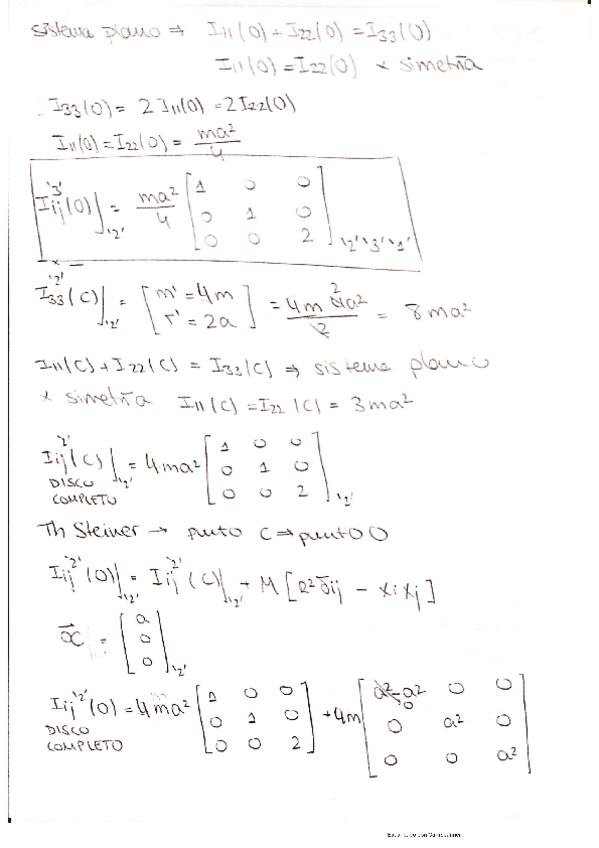 sistema plano ⇒ I11(0) + I22(0) = I33(0)
I11(0) = I22(0) x simetría
I33(0) = 2I11(0) = 2I22(0)
I11(0) = I22(0) = ma²/4
Iij'3'(0)]'2' = ma²/4 [1 0 0; 0 1 0; 0 0 2]'2''3''1'
I33'2'(C)]'2' = [m' = 4m; r' = 2a] = 4m 4a²/2 = 8ma²
I11(C) + I22(C) = I33(C) ⇒ sistema plano
x simetría I11(C) = I22(C) = 3ma²
Iij'2'(C)]'2' = 4ma² [1 0 0; 0 1 0; 0 0 2]'2'
DISCO
COMPLETO
Th Steiner → punto C ⇒ punto O
Iij'2'(0)]'2' = Iij'2'(C)]'2' + M[R²δij - xixj]
OC = [a; 0; 0]'2'
Iij'2'(0) = 4ma² [1 0 0; 0 1 0; 0 0 2] + 4m [a²-a² 0 0; 0 a² 0; 0 0 a²]
DISCO
COMPLETO